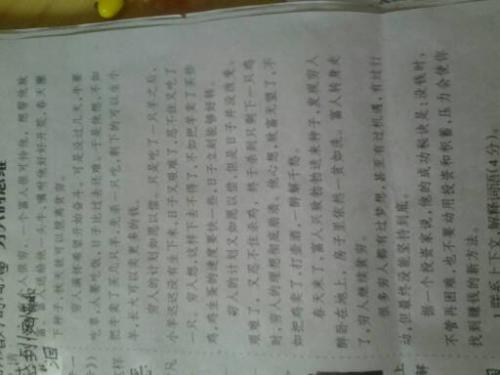 人很穷，一个富人很可怜他，想帮他致
富。富人送给他一头牛，嘱咐他好好开荒，春天撒
下种子，秋天就可以摆离贫穷。
穷人满怀希望开始奋斗。可是没过几天，牛要
吃草，人要吃饭，日子比过去还难。于是他想，不如
把牛卖了，买几只羊，先杀一只吃，剩下的可以生小
羊，长大可以卖更多的钱。
穷人的计划如愿以偿。只是吃了一只羊之后，
小羊迟迟没有生下来，日子又艰难了，忍不住又吃了
一只。穷人想，这样下去不得了，不如把羊卖了买些
鸡，鸡生蛋的速度要快一些，日子立刻能够好转。
穷人的计划又如愿以偿，但是日子并没改变。
艰难了，又忍不住杀鸡，终于杀到只剩下一只鸡
时，穷人的理想彻底崩溃。他心想，致富无望了，不
如把鸡卖了，打壶酒，一醉解千愁。
春天来了，富人兴致勃勃送来种子，发现穷人
醉卧在地上，房子里依然一贫如洗。富人转身走
了，穷人继续贫穷。
很多穷人都有过梦想，甚至有过机遇，有过行
动，但最终没能坚持到底。
据一个投资家说，他的成功秘诀是：没钱时，
不管再困难，也不要动用投资和积蓄，压力会使你
找到赚钱的新方法。
1.联系上下文，解释词语(4分)